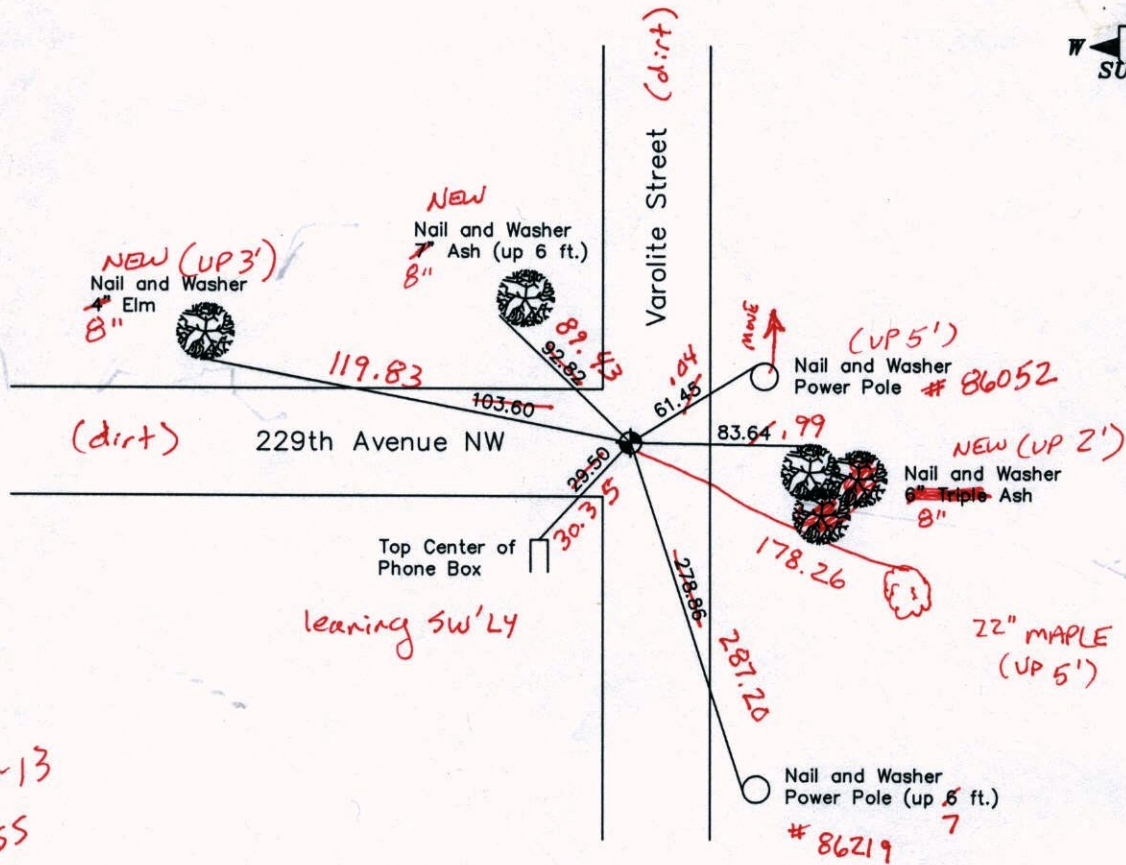 W
SU
(dirt)
Varolite Street
NEW
Nail and Washer
7" Ash (up 6 ft.)
8"
NEW (UP 3')
Nail and Washer
4" Elm
8"
119.83
103.60
89.43
92.82
.04
61.45
MOVE
(UP 5')
Nail and Washer
Power Pole # 86052
83.64 .99
NEW (UP 2')
Nail and Washer
6" Triple Ash
8"
(dirt)
229th Avenue NW
29.50
30.35
Top Center of
Phone Box
leaning SW'LY
178.26
22" MAPLE
(UP 5')
278.86
287.20
Nail and Washer
Power Pole (up 6 ft.)
7
# 86219
-13
SS